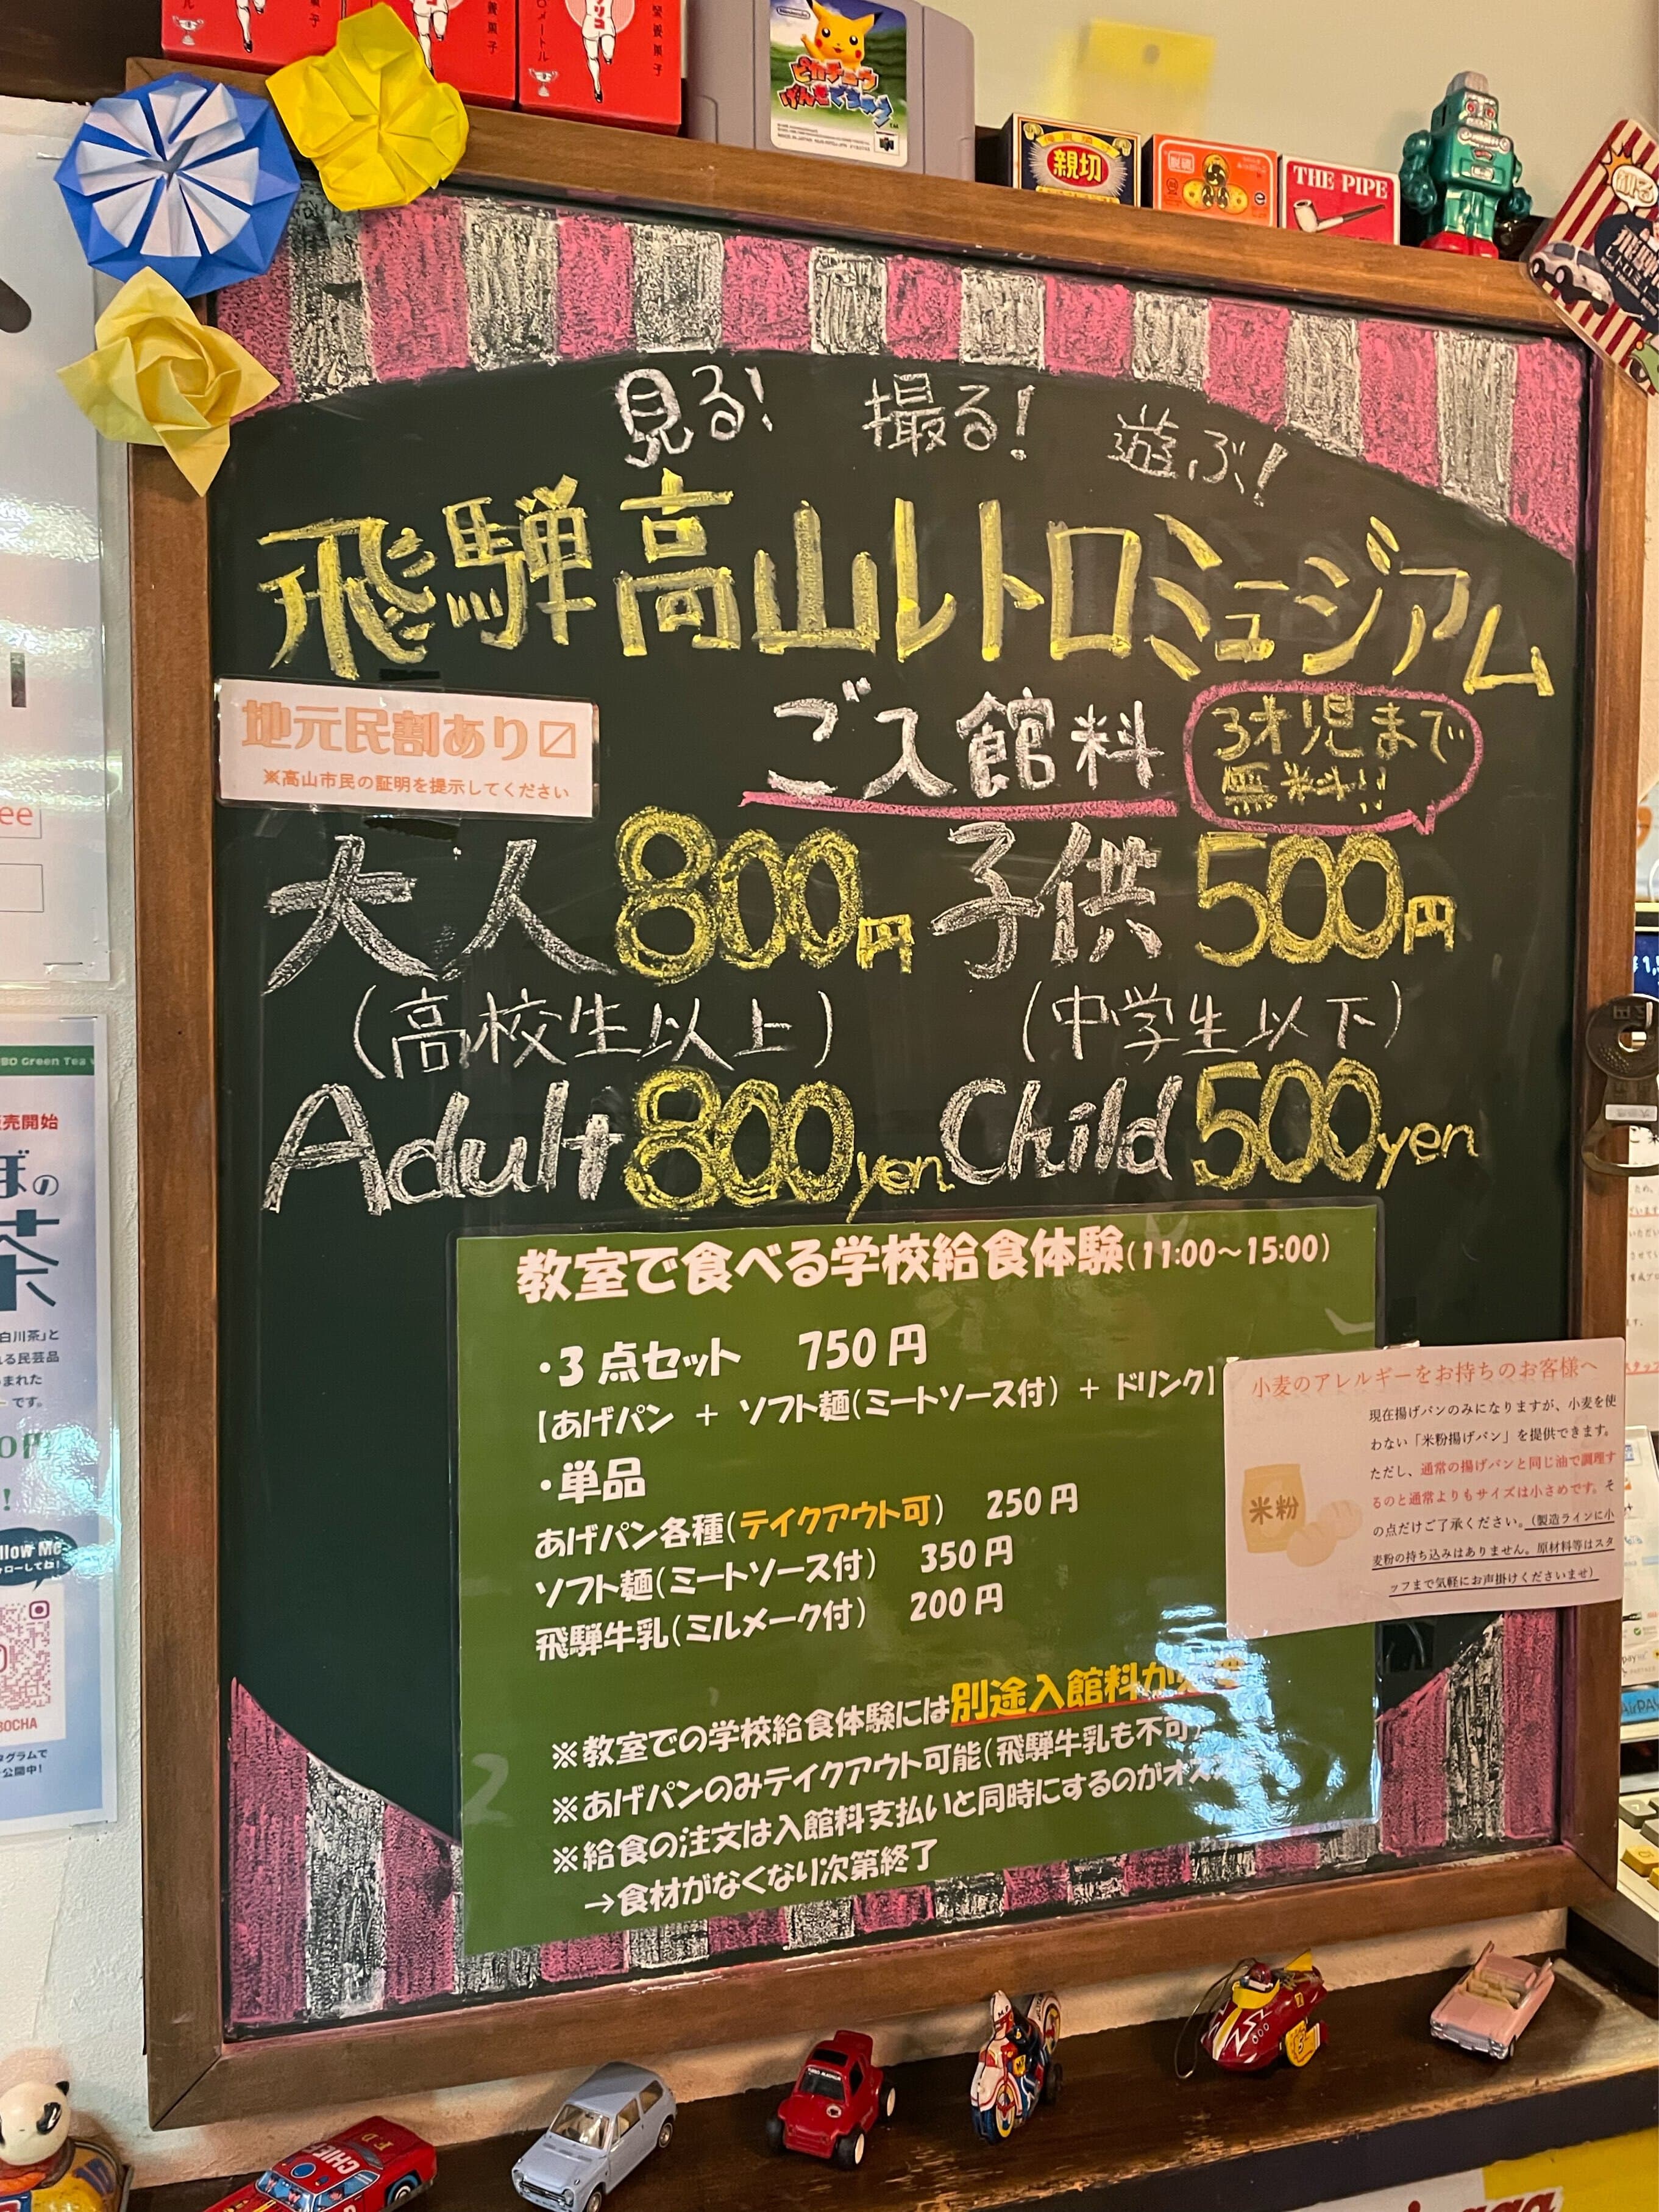 ピカチュウ
げんきでちゅう
親切
THE PIPE
見る! 撮る! 遊ぶ!
飛騨高山レトロミュージアム
地元民割あり
※高山市民の証明を提示してください
ご入館料
3才児まで
無料!!
大人 800円 子供 500円
(高校生以上) (中学生以下)
Adult 800yen Child 500yen
教室で食べる学校給食体験(11:00〜15:00)
・3点セット 750円
【あげパン + ソフト麺(ミートソース付) + ドリンク】
・単品
あげパン各種(テイクアウト可) 250円
ソフト麺(ミートソース付) 350円
飛騨牛乳(ミルメーク付) 200円
※教室での学校給食体験には別途入館料が
※あげパンのみテイクアウト可能(飛騨牛乳も不可)
※給食の注文は入館料支払いと同時にするのがオス
→食材がなくなり次第終了
小麦のアレルギーをお持ちのお客様へ
現在揚げパンのみになりますが、小麦を使
わない「米粉揚げパン」を提供できます。
ただし、通常の揚げパンと同じ油で調理す
るのと通常よりもサイズは小さめです。そ
の点だけご了承ください。(製造ラインに小
麦粉の持ち込みはありません。原材料等はスタ
ッフまで気軽にお声掛けくださいませ)
米粉
BO Green Tea
売開始
ぼの
茶
白川茶」と
る民芸品
まれた
です。
llow Me
BOCHA
タグラムで
公開中!
CHIEF
F.D